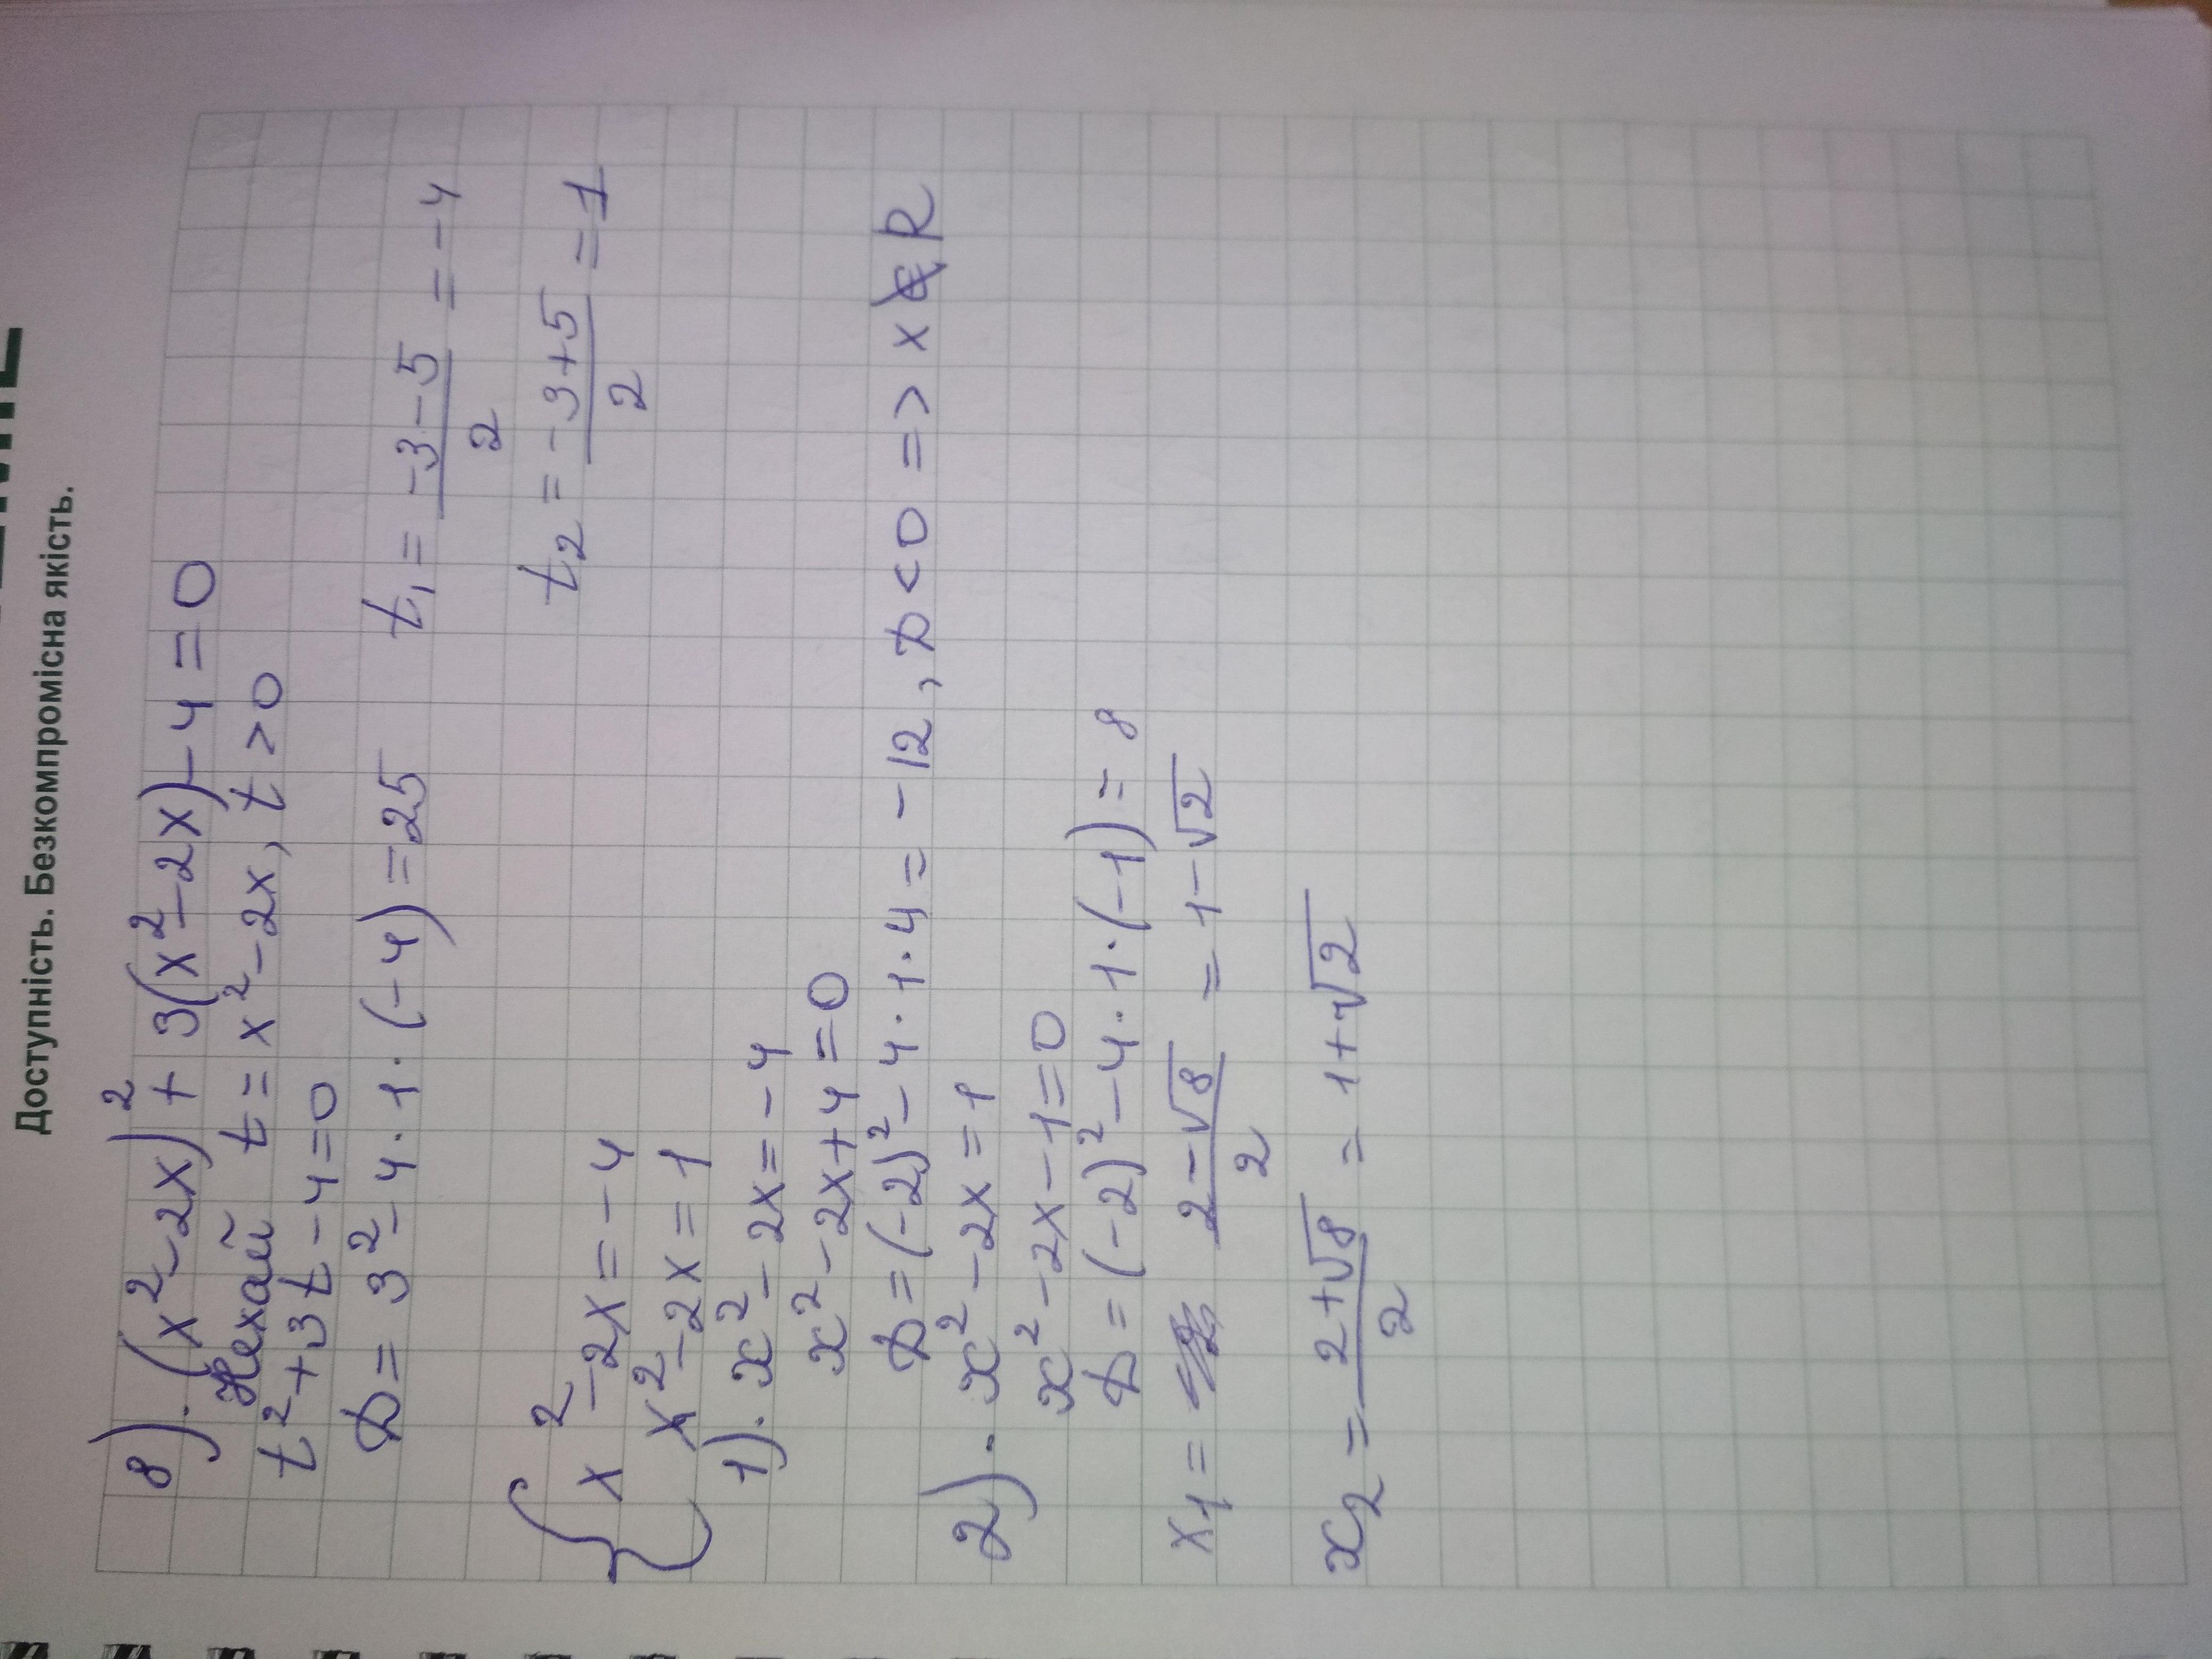 Доступність. Безкомпромісна якість.
8). (x²-2x)² + 3(x²-2x)-4=0
Нехай t=x²-2x, t>0
t²+3t-4=0
D= 3²-4·1·(-4)=25
t₁= (-3-5)/2 = -4
t₂= (-3+5)/2 = 1
{ x²-2x=-4
x²-2x=1
1). x²-2x=-4
x²-2x+4=0
D=(-2)²-4·1·4=-12, D<0 => x∉R
2). x²-2x=1
x²-2x-1=0
D=(-2)²-4·1·(-1)=8
x₁= (2-√8)/2 = 1-√2
x₂= (2+√8)/2 = 1+√2